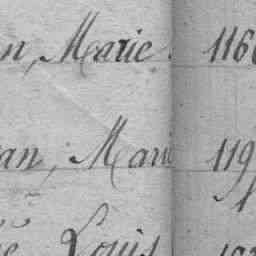 n, Marie. 116
an, Marie 119
é Louis